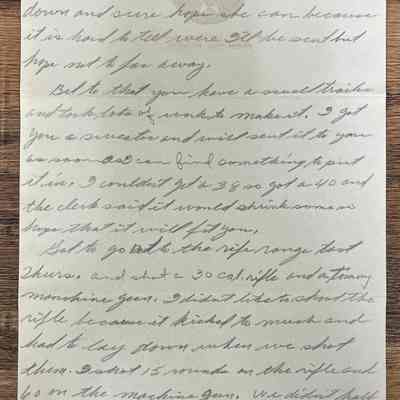 down and sure hope she can because
it is hard to tell were I'll be sent but
hope not to far away.
Bet to that you have a swell trailer
and took lots of work to make it. I got
you a sweater and will sent it to you
as soon as I can find something to put
it in. I couldn't get a 38 so got a 40 and
the clerk said it would shrink some so
hope that it will fit you.
Got to go to the rife range last
Thurs. and shot a 30 cal. rifle and a tommy
manchine gun. I didn't like to shoot the
rifle because it kicked to much and
had to lay down when we shot
them. I shot 15 rounds on the rifle and
60 on the machine gun. We didn't half